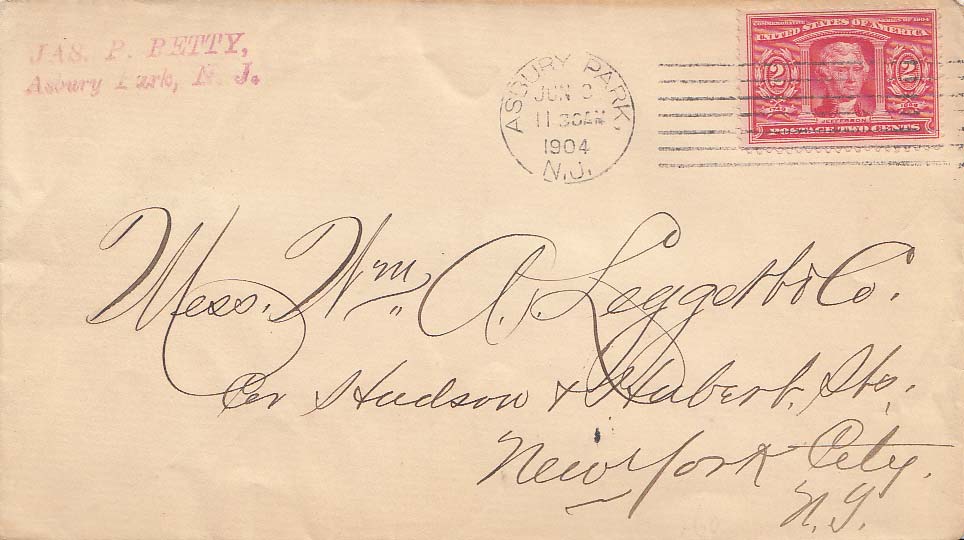 JAS. P. BETTY,
Asbury Park, N. J.
ASBURY PARK,
JUN 3
11 30AM
1904
N.J.
COMMEMORATIVE SERIES OF 1904
UNITED STATES OF AMERICA
2 2
1743 1826
JEFFERSON
POSTAGE TWO CENTS
Mess. Wm A. Leggett & Co.
Cor Hudson & Hubert. Sts.
New York City.
N.Y.